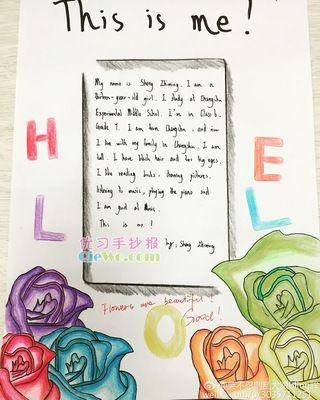 This is me!
My name is Sheng Ziming. I am a
thirteen-year-old girl. I study at Changsha
Experimental Middle School. I'm in Class 6,
Grade 7. I am from Changsha, and now
I live with my family in Changsha. I am
tall. I have black hair and two big eyes.
I like reading books, drawing pictures,
listening to music, playing the piano and
I am good at Music.
This is me!
by: Sheng Ziming
H
E
L
L
O
优习手抄报
CieWo.com
Flowers are beautiful!
Good!